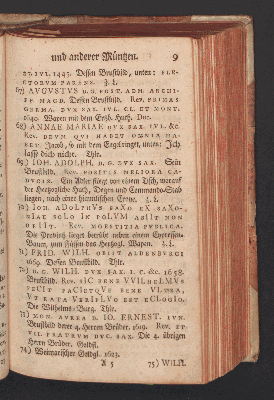 und anderer Müntzen. 9
27. IVL. 1445. Dessen Brustbild, unter: ELE-
CTORVM PARENS. J. L.
67) AVGVSTVS D. G. POST. ADM. ARCHI-
EP. MAGD. Dessen Brustbild. Rev. PRIMAS
GERMA. DVX SAX. IVL. CL. ET MONT.
1640. Wapen mit dem Ertzh. Huth. Duc.
68) ANNAE MARIAE DVX SAX. IVL. &c.
Rev. DEVM QVI HABET OMNIA HA-
BET Jacob, so mit dem Engel ringet, unten: Ich
lasse dich nicht. Thlr.
69) IOH. ADOLPH D. G. DVX SAX. Sein
Brustbild. Rev. MELIORA
Ein Adler fliegt von einem Tisch, worauf
der Hertzogliche Huth, Degen und Commando-Stab
liegen, nach einer himmlischen Crone. J. L.
70) IOH. ADOLPHVS SAXO EX SAXO-
NIAE SOLO IN POLVM ABIIT NON
OBIIT. Rev. MOESTITIA PVBLICA.
Die Provintz lieget betrübt neben einem
Baum, zum Füssen das Hertzogl. Wapen. J. L.
71) FRID. WILH. OBIIT ALDENBVRGI
1669. Dessen Brustbild. Thlr.
72) D. G. WILH. DVX SAX. I. C. &c. 1658.
Brustbild. Rev. SIC BENE VVILHELMVS
FECIT FACIETQVE BENE VLTRA,
VT RATA EST
Die Wilhelms-Burg. Thlr.
73) MON. AVREA D. IO. ERNEST. IVN.
Brustbild derer 4. Herren Brüder. 1619. Rev. ET
VII. FRATRVM DVC. SAX. Die 4. übrigen
Herrn Brüder. Goldgl.
74) Weimarischer Goldgl. 1623.
A 5 75) WILH.